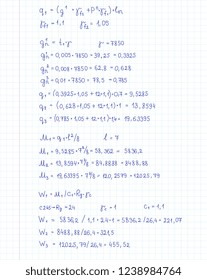 q₁ = (gⁿ · γf₂ + Pⁿ γf₁) · lₘ
γf₁ = 1,1 γf₂ = 1,05
gⁿ = t · γ γ = 7850
gⁿ = 0,005 · 7850 = 39,25 = 0,3925
gⁿ = 0,008 · 7850 = 62.8 = 0,628
gⁿ = 0,01 · 7850 = 78,5 = 0,785
q₁ = (0,3925 · 1,05 + 12 · 1,1) · 0,7 = 9,5285
q₂ = (0,628 · 1,05 + 12 · 1,1) · 1 = 13,8594
q₃ = (0,785 · 1,05 + 12 · 1,1) · 1.4 = 19.63395
M₁ = q₁ · l²/8 l = 7
M₁ = 9,5285 · 7²/8 = 58,362 = 5836,2
M₂ = 13,8594 · 7²/8 = 84,8888 = 8488,88
M₃ = 19,63395 · 7²/8 = 120,2579 = 12025.79
W₁ = M₁ / C₁ · Ry · γc
C245 = Ry = 24 γc = 1 C₁ = 1,1
W₁ = 5836,2 / 1,1 · 24 · 1 = 5836,2 / 26,4 = 221,07
W₂ = 8488,88 / 26,4 = 321,5
W₃ = 12025,79 / 26,4 = 455,52
1238984764